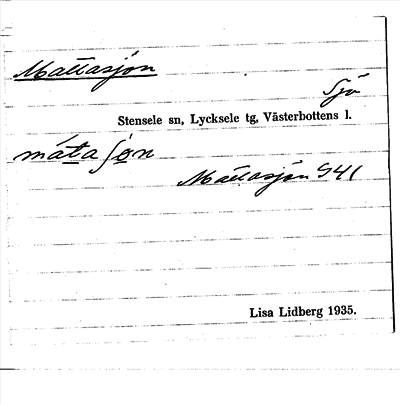 Mattasjön
Sjö
Stensele sn, Lycksele tg, Västerbottens l.
mátaʃøn
Mattasjön S41
Lisa Lidberg 1935.